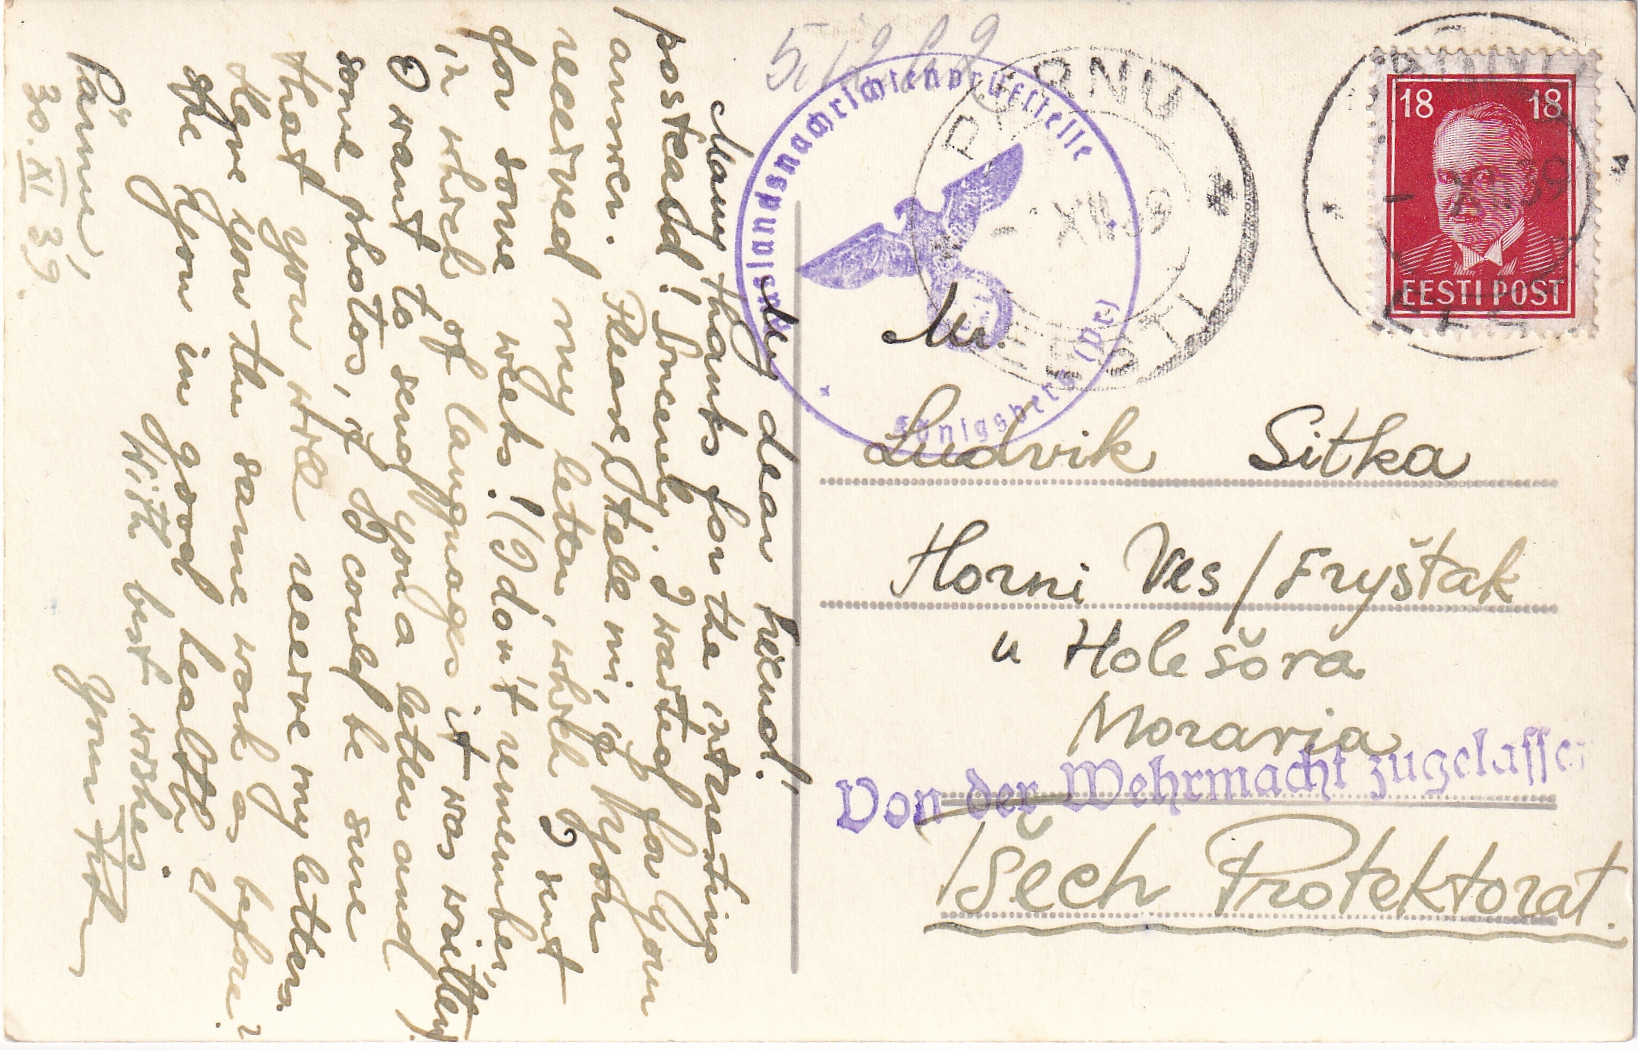 My dear friend!
Many thanks for the interesting
postcard! Sincerely I waited for your
answer. Please, tell mi, if you
received my letter, which I sent
for some weeks! (I don't remember,
in which of languages it was written)
I want to send you a letter and
some photos, if I could be sure
that you will receive my letters.
Have you the same work as before?
Are you in good health?
With best wishes
your
Pärnu,
30. XI 39.
5.12.39
Auslandsnachrichtenprüfstelle
Königsberg (Pr)
PÄRNU
- 1 XII 39
EESTI
18 18
EESTI POST
Mr.
Ludvik Sitka
Horni Ves / Fryštak
u Holešova
Moravia
Von der Wehrmacht zugelassen
Tšech Protektorat.